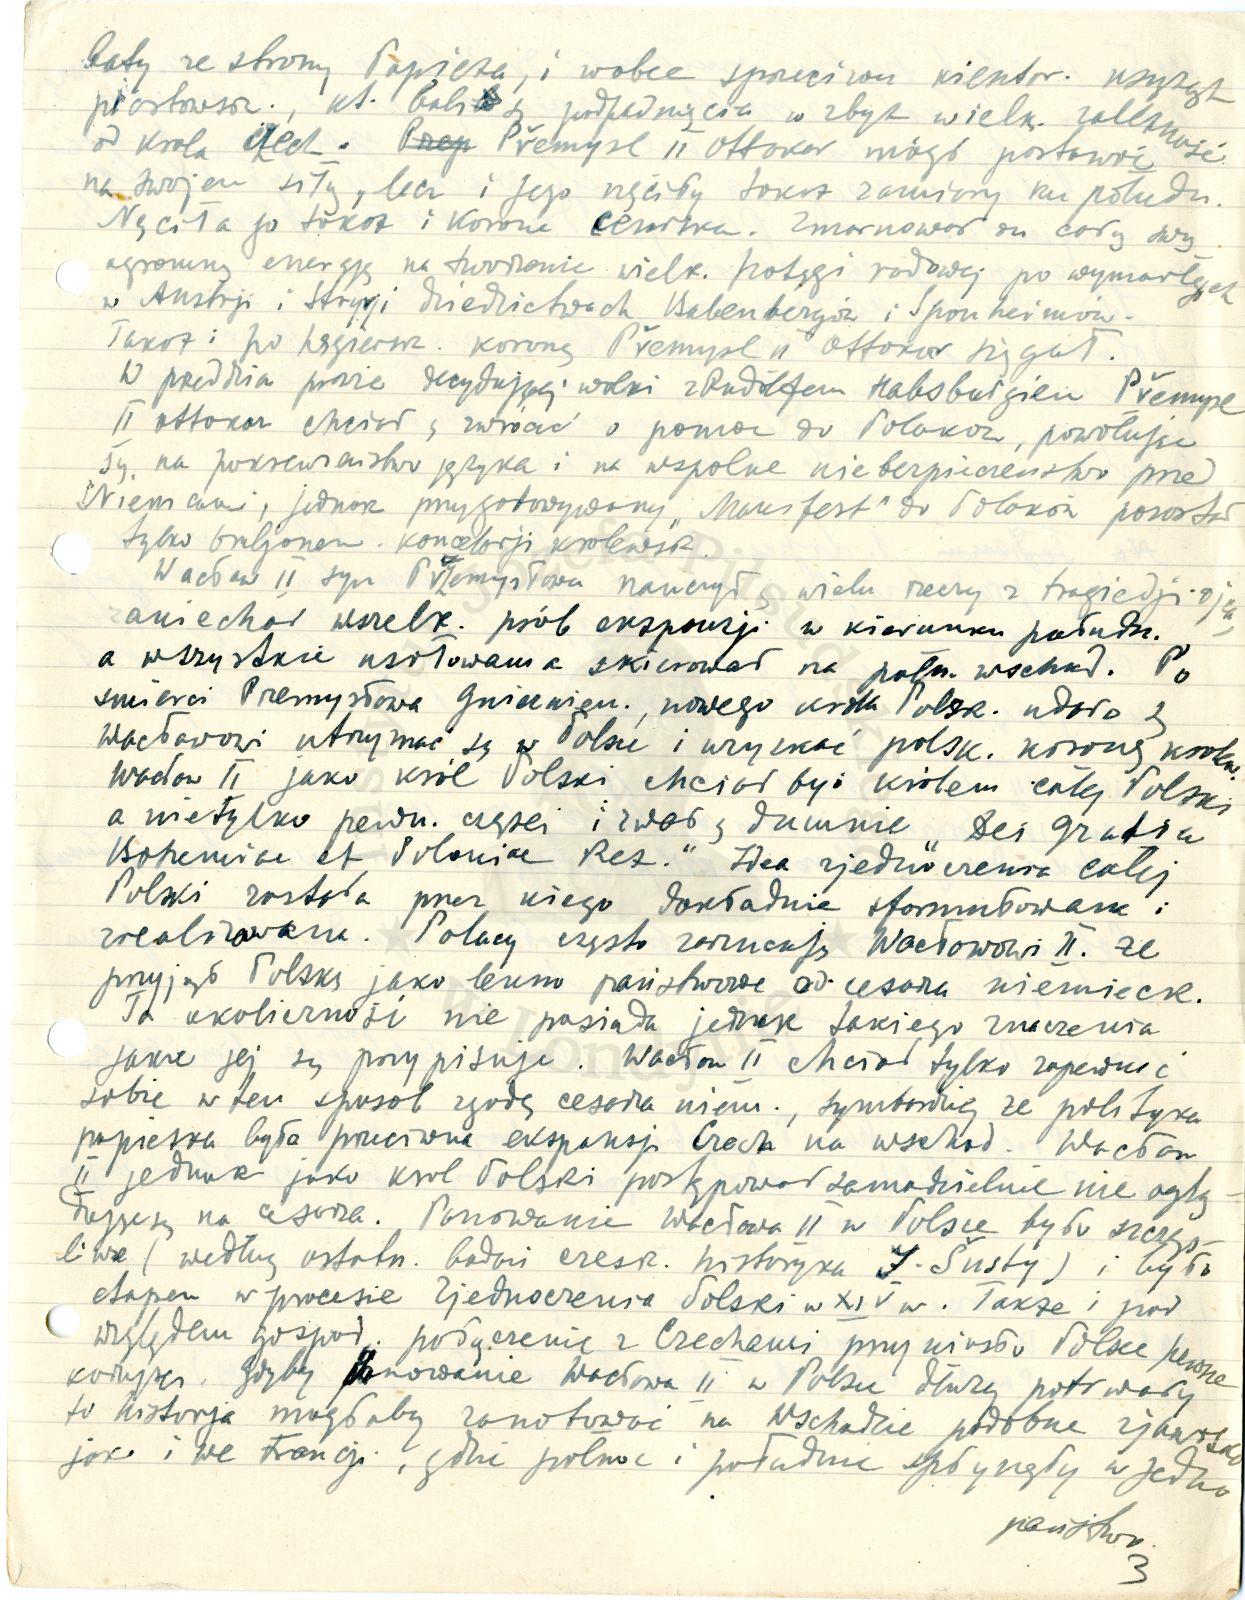 ze strony Papieża, i wobec sprzeciwu niektór. książąt
piastowsk., kt. bali się podpadnięcia w zbyt wielk. zależność
od króla Czech. Přemysl II Ottokar mógł postawić
na swojem siły, lecz i jego nęciły także zamiary ku połudn.
Nęciła go także i korona cesarska. Zmarnował on całą swą
ogromną energję na tworzenie wielk. potęgi rodowej po wymarłych
w Austrji i Styrji dziedzictwach Babenbergów i Sponheimów.
Także i po węgiersk. koronę Přemysl II Ottokar sięgał.
W przeddzień prawie decydującej walki z Rudolfem Habsburgiem Přemysl
II Ottokar chciał się zwrócić o pomoc do Polaków, powołując
się na pokrewieństwo języka i na wspólne niebezpieczeństwo przed
Niemcami, jednak przygotowywany "Manifest" do Polaków pozostał
tylko brulionem kancelarji królewsk.
Wacław II syn Přemysłowa nauczył się wielu rzeczy z tragedji ojca,
zaniechał wszelk. prób ekspanzji w kierunku połudn.
a wszystkie usiłowania skierował na półn. wschód. Po
śmierci Przemysława Gnieźnień., nowego króla Polsk. udało się
Wacławowi utrzymać się w Polsce i uzyskać polsk. koronę królew.
Wacław II jako król Polski chciał być królem całej Polski
a nietylko pewn. części i zwał się dumnie "Dei Gratia
Bohemiae et Poloniae Rex." Idea zjednoczenia całej
Polski została przez niego dokładnie sformułowana i
zrealizowana. Polacy często zarzucają Wacławowi II. że
przyjął Polskę jako lenno państwowe od cesarza niemieck.
Ta okoliczność nie posiada jednak takiego znaczenia
jakie jej się przypisuje. Wacław II chciał tylko zapewnić
sobie w ten sposób zgodę cesarza niem., że polityka
papieska była przeciwna ekspansji Czech na wschód. Wacław
II jednak jako król Polski postępował samodzielnie nie oglą-
dając się na cesarza. Panowanie Wacława II w Polsce było szczęś-
liwe (według ostatn. badań czesk. historyka J. Šusty) i było
etapem w procesie zjednoczenia Polski w XIV w. Także i pod
względem gospod. połączenie z Czechami przyniosło Polsce pewne
korzyści. Gdyby panowanie Wacława II w Polsce dłużej potrwały
to historja mogłaby zanotować na wschodzie podobne zjawisko
jak i we Francji, gdzie północ i południe spłynęły w jedno
państwo.
3